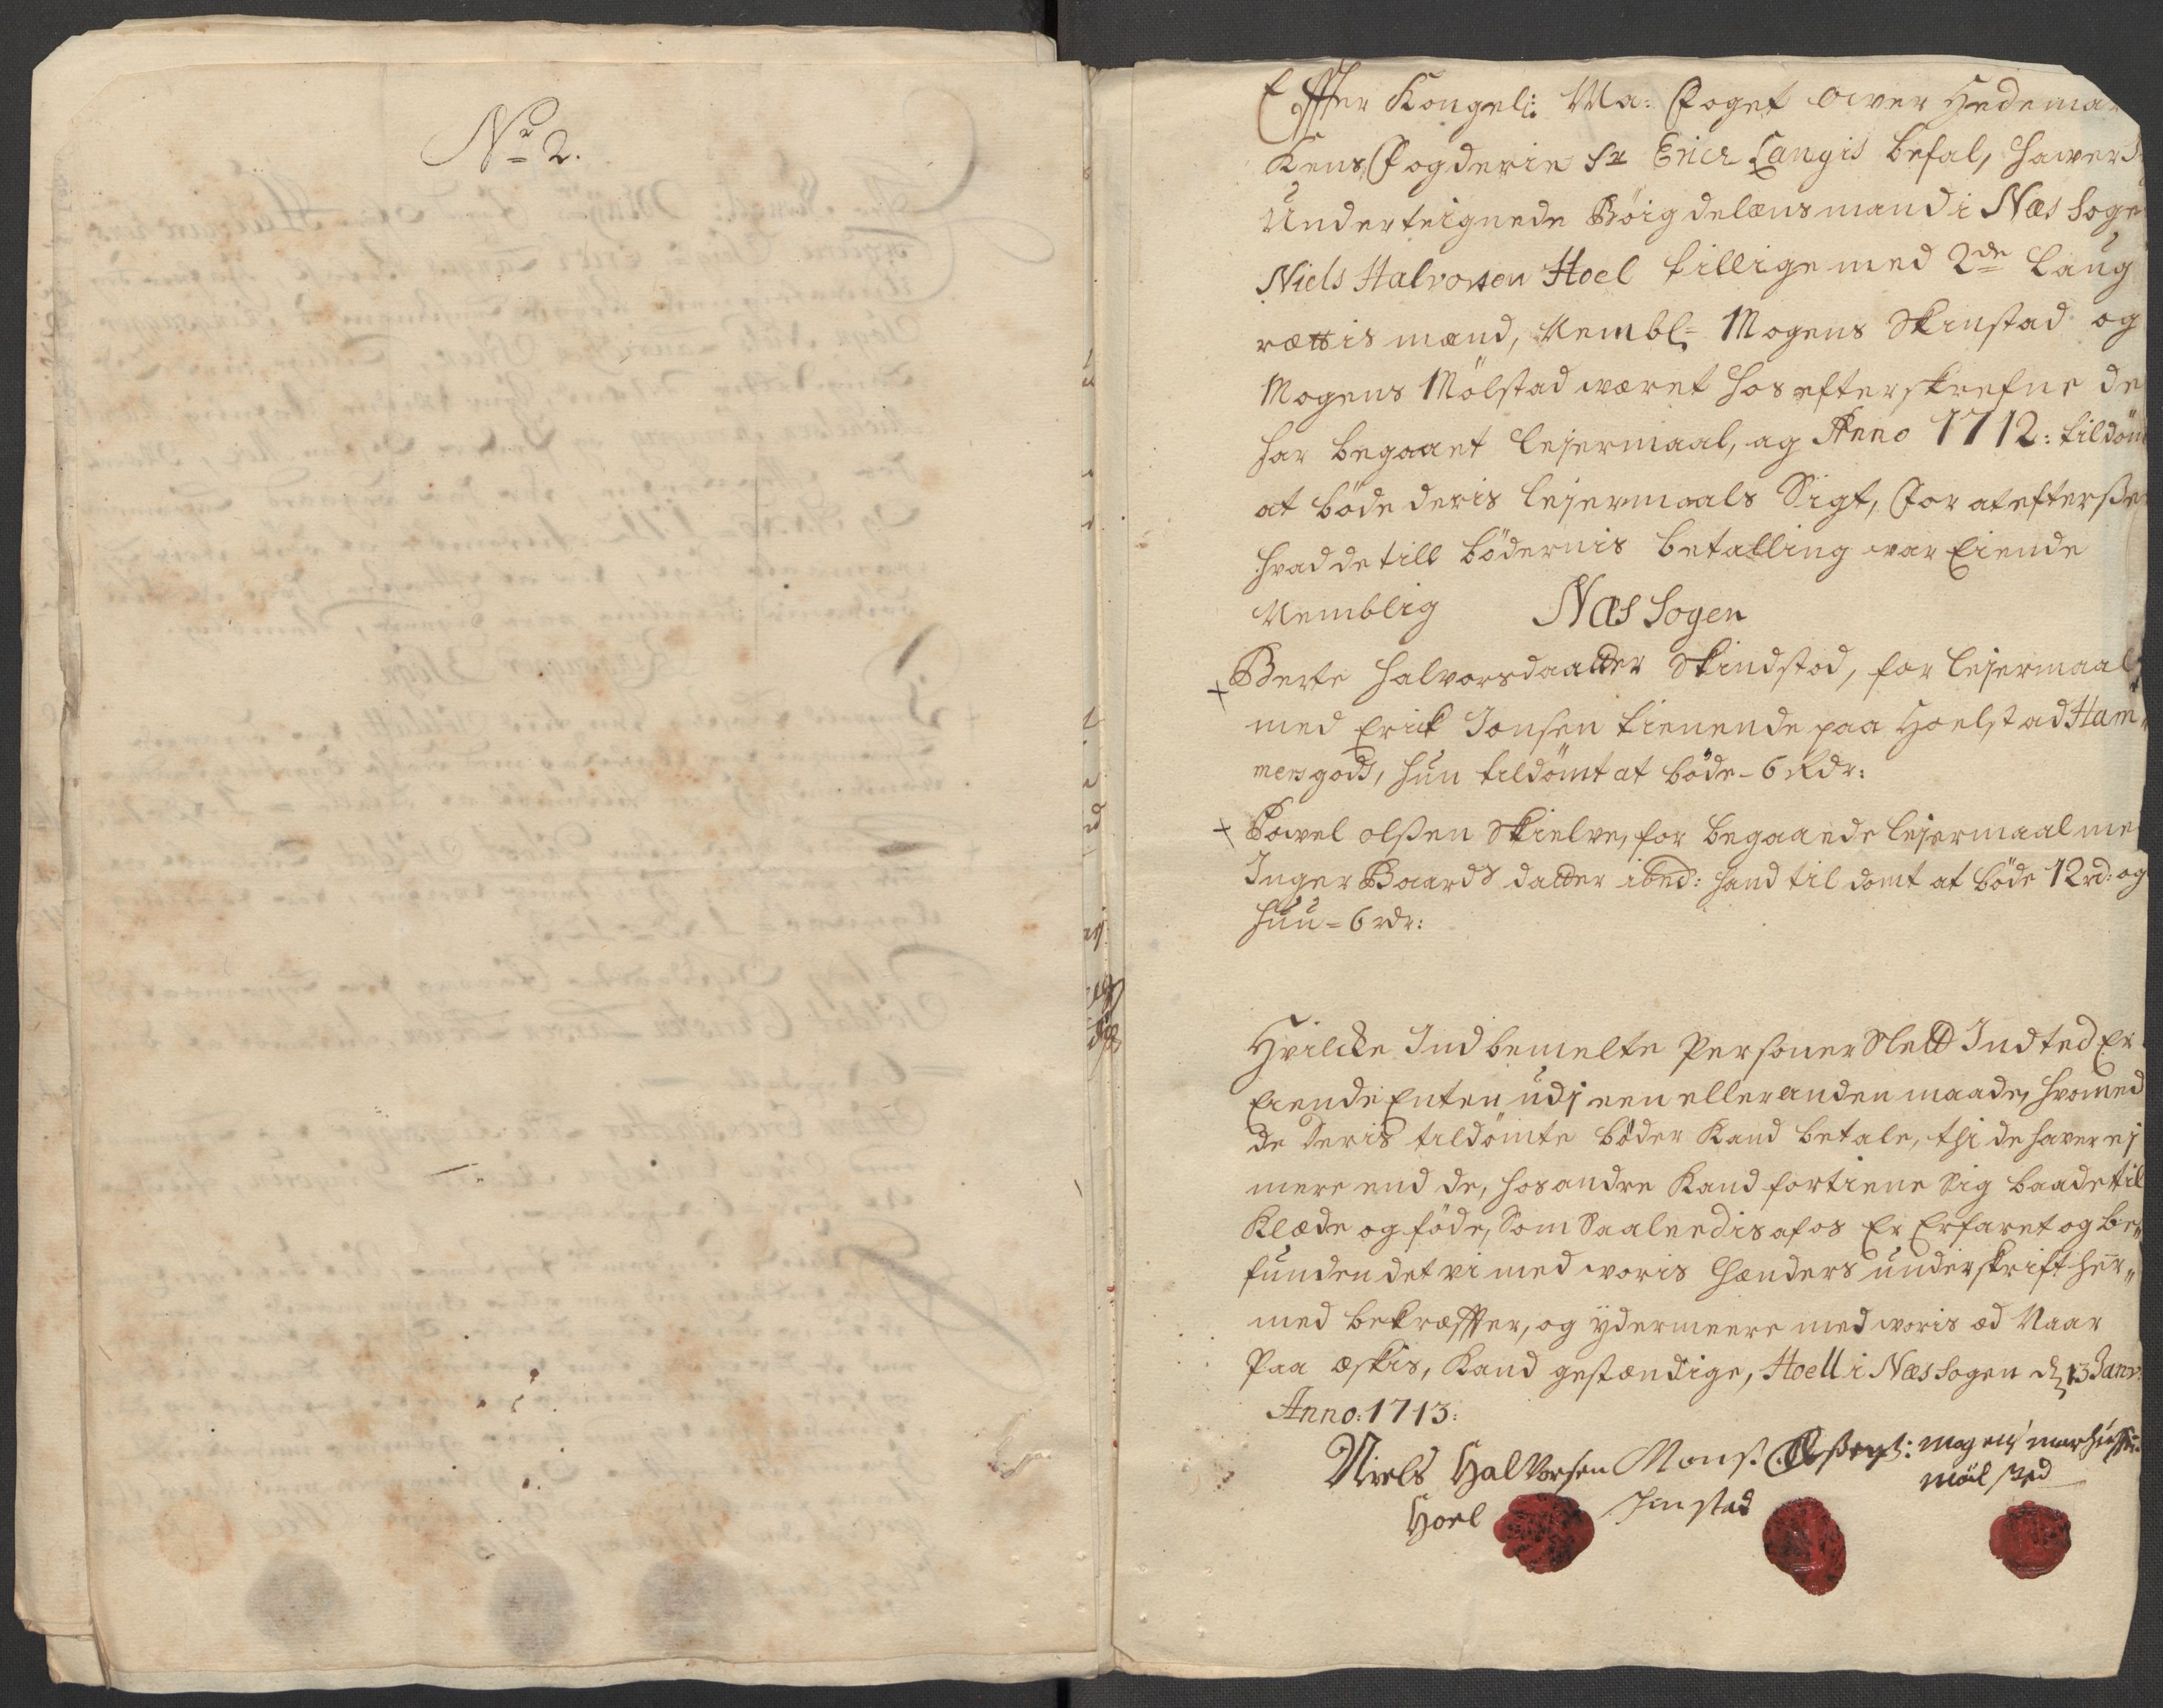 Nr 2.
Effter Kongel: Ma: Foget over Hedema
Kens Fogderie Sr Erich Langis befal, hawer
Underteignede Böigdelænsmand i Næs Sogn
Niels Halvorsen Hoel tillige med 2de Laug
rættis mænd, Nembl= Mogens Skinstad og
Mogens Mölstad wæret hos efterskrefne de
har begaaet lejermaal, og Anno 1712: tildöm
at böde deris lejermaals Sigt, for at efterße
hvad de till bödernis betalling war Eiende
Nemblig Næs Sogen
Berte Halvorsdaatter Skindstod, for lejermaal
med Erick Jonsen tienende paa Hoelstad Ham„
mersgods, hun tildömt at böde - 6 Rdr:
Powel olßen Skielve, for begaaede lejermaal me
Inger Baards datter ibed: hand til domt at böde 12 rd: og
hun = 6 rdr:
Hvilcke Indbemelte Personer Slett Indted Er
Eiende Enten udj een eller anden maade, hvomed
de deris tildömte böder Kand betale, thi de haver ej
mere end de, hos andre Kand fortiene Sig baade til
Klæde og föde, Som Saaledis af os Er Erfaret og be„
funden det vi med woris Hænders underskrift her„
med bekræffter, og ydermeere med woris æd Naar
Paa æskis, Kand gestændige, Hoell i Næs Sogen d 13 Janv:
Anno: 1713:
Niels Halvorsen Monß mogens
Hoel Sinstad mölstad